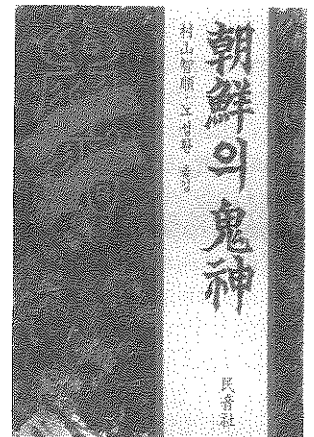 朝鮮의 鬼神
村山智順 노성환 옮김
民音社